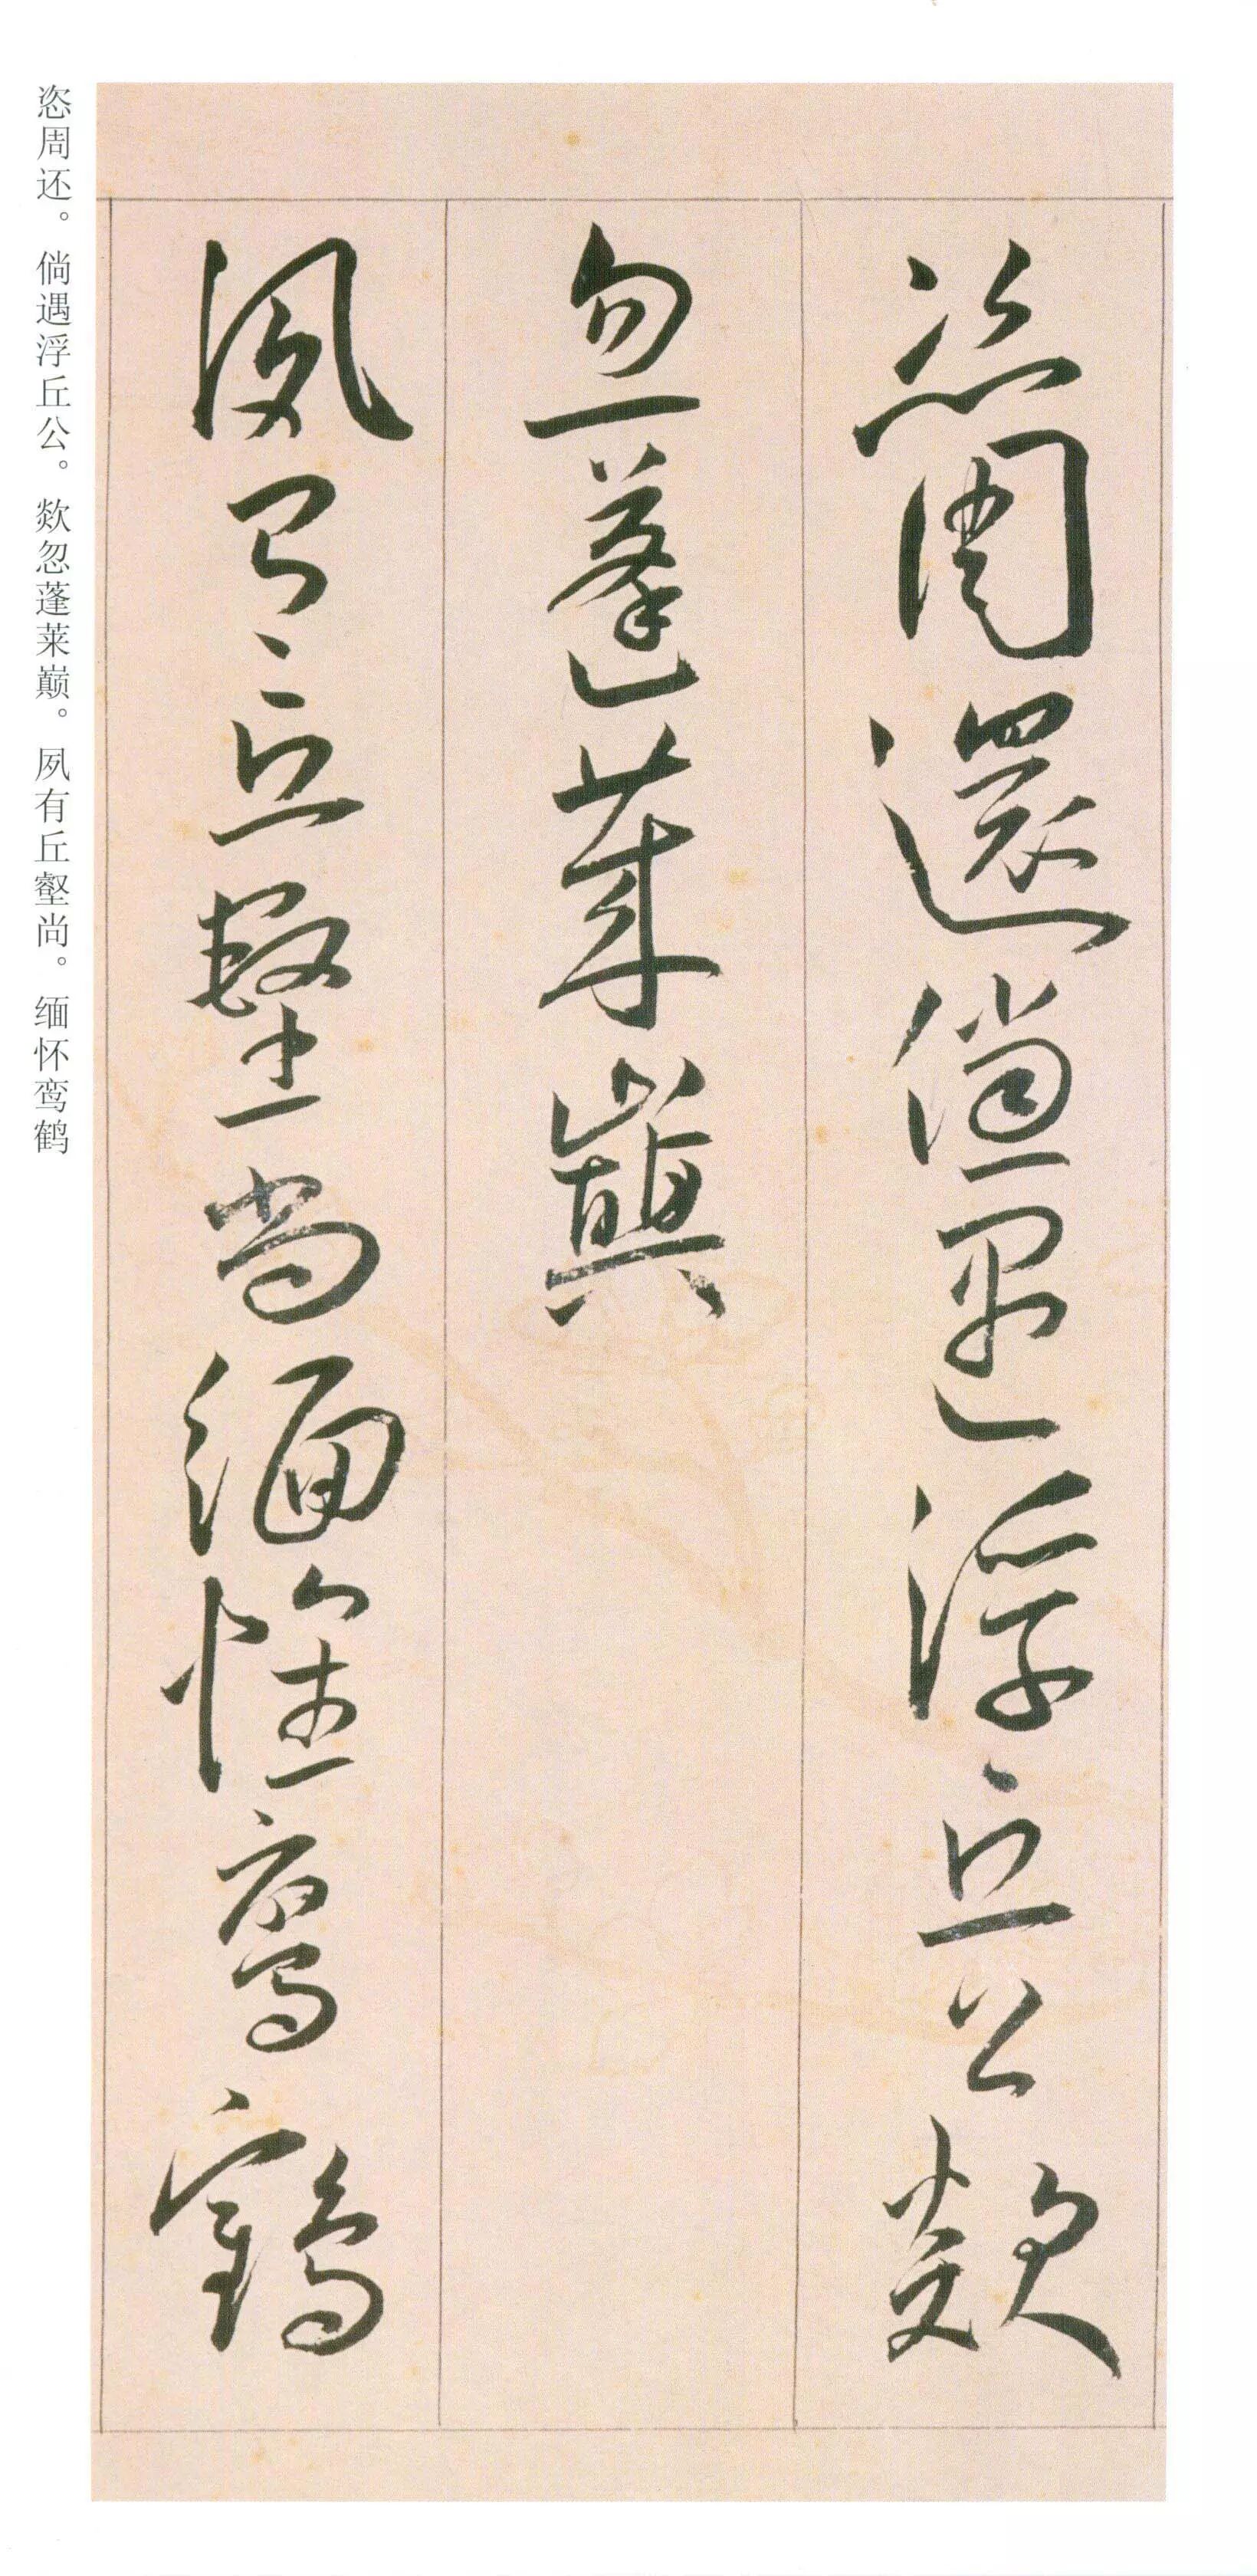 恣周還倘遇浮丘公歘
忽蓬萊巔
夙有丘壑尚緬懷鸞鶴
恣周还。倘遇浮丘公。欻忽蓬莱巅。夙有丘壑尚。缅怀鸾鹤